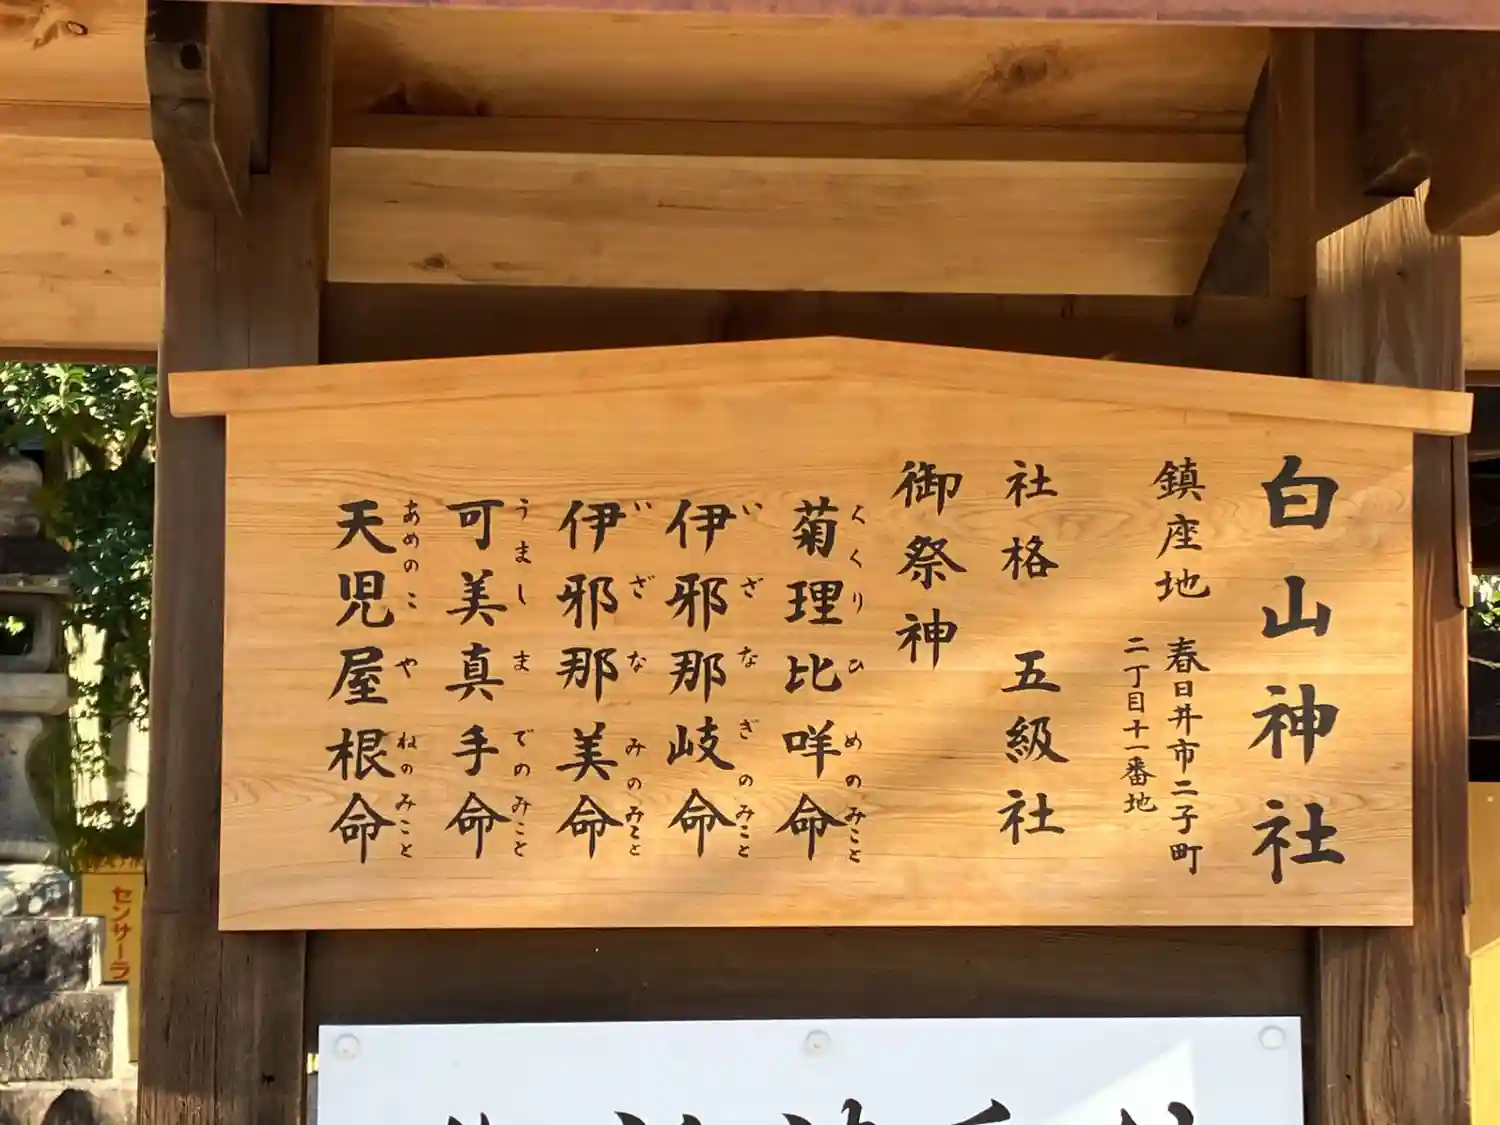 白山神社
鎮座地 春日井市二子町
二丁目十一番地
社格 五級社
御祭神
菊理比咩命
くくりひめのみこと
伊邪那岐命
いざなぎのみこと
伊邪那美命
いざなみのみこと
可美真手命
うましまでのみこと
天児屋根命
あめのこやねのみこと
センサーラ